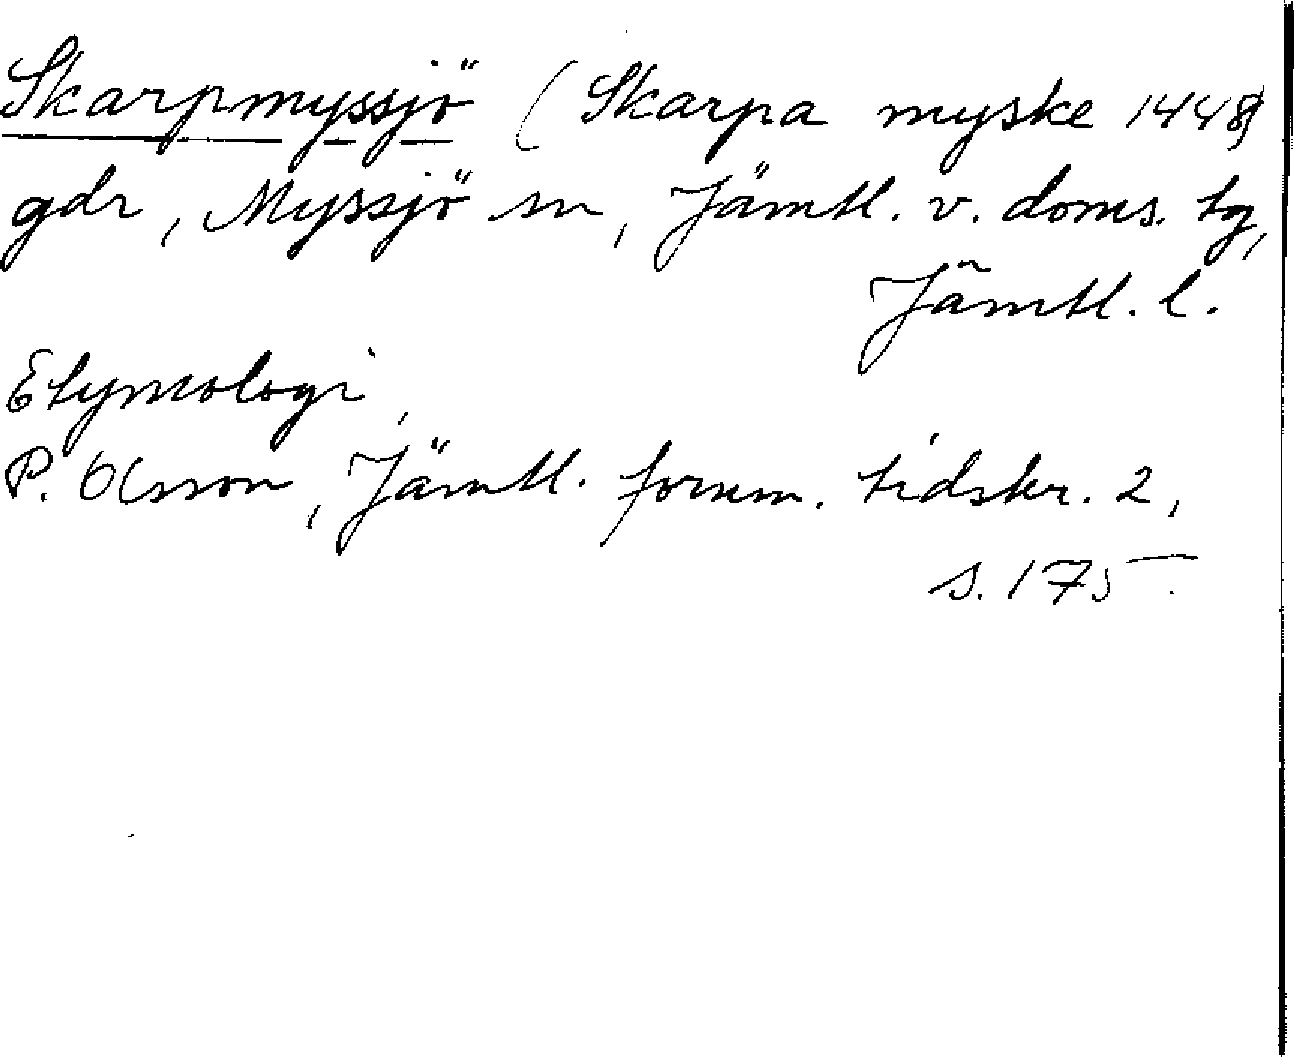 Skarpmyssjö (Skarpa myske 1448)
gdr, Myssjö sn, Jämtl. v. doms. tg,
Jämtl. l.
Etymologi
P. Olsson, Jämtl. fornm. tidskr. 2,
s. 175.